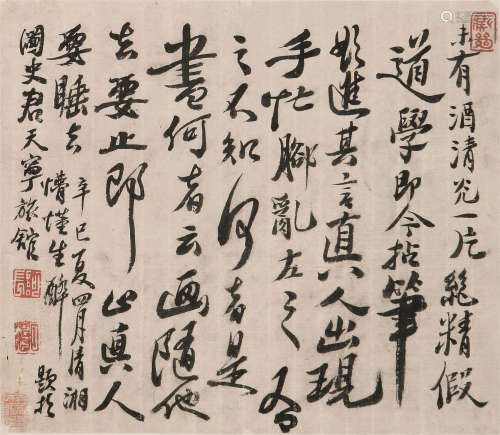 未有酒清光一片絕精假
道學即今拈筆
欲進其言真人出現
手忙腳亂左之右
之不知何者是
畫何者云画隨他
去要止即止真人
要睡去
辛巳夏四月清湘
懵懂生醉
題於
國史君天寧旅館